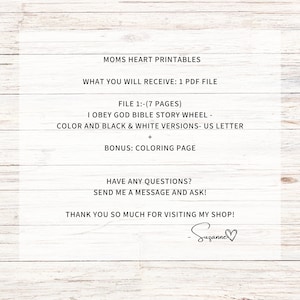 MOMS HEART PRINTABLES
WHAT YOU WILL RECEIVE: 1 PDF FILE
FILE 1:-(7 PAGES)
I OBEY GOD BIBLE STORY WHEEL -
COLOR AND BLACK & WHITE VERSIONS- US LETTER
+
BONUS: COLORING PAGE
HAVE ANY QUESTIONS?
SEND ME A MESSAGE AND ASK!
THANK YOU SO MUCH FOR VISITING MY SHOP!
- Suzanne♡